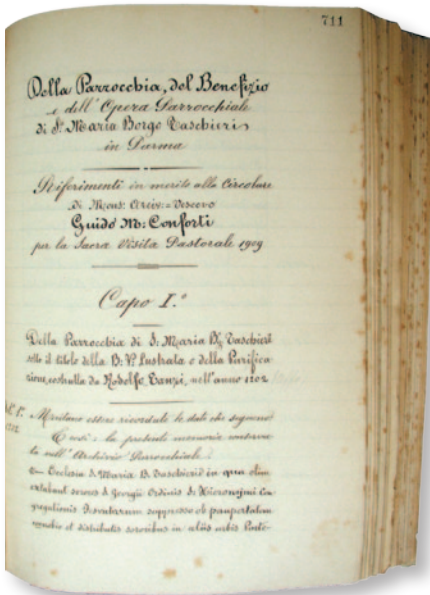 711
Della Parrocchia, del Benefizio
e dell'Opera Parrocchiale
di S. Maria Borgo Taschieri
in Parma
Riferimenti in merito alla Circolare
di Mons. Arciv. Vescovo
Guido M: Conforti
per la Sacra Visita Pastorale 1909
Capo I.º
Della Parrocchia di S. Maria Bº Taschieri
sotto il titolo della B. V. Lustrata o della Purifica-
zione, costrutta da Rodolfo Tanzi, nell'anno 1202
1202
Meritano essere ricordate le date che seguono
E così: la presente memoria conserva-
ta nell'Archivio Parrocchiale:
Ecclesia S. Maria B. Taschierid in qua olim
extabant sorores S. Georgii Ordinis S. Hieronymi Con-
gregationis Jesuatarum suppresso ob paupertatem
et distributis sororibus in aliis urbis Coeno-